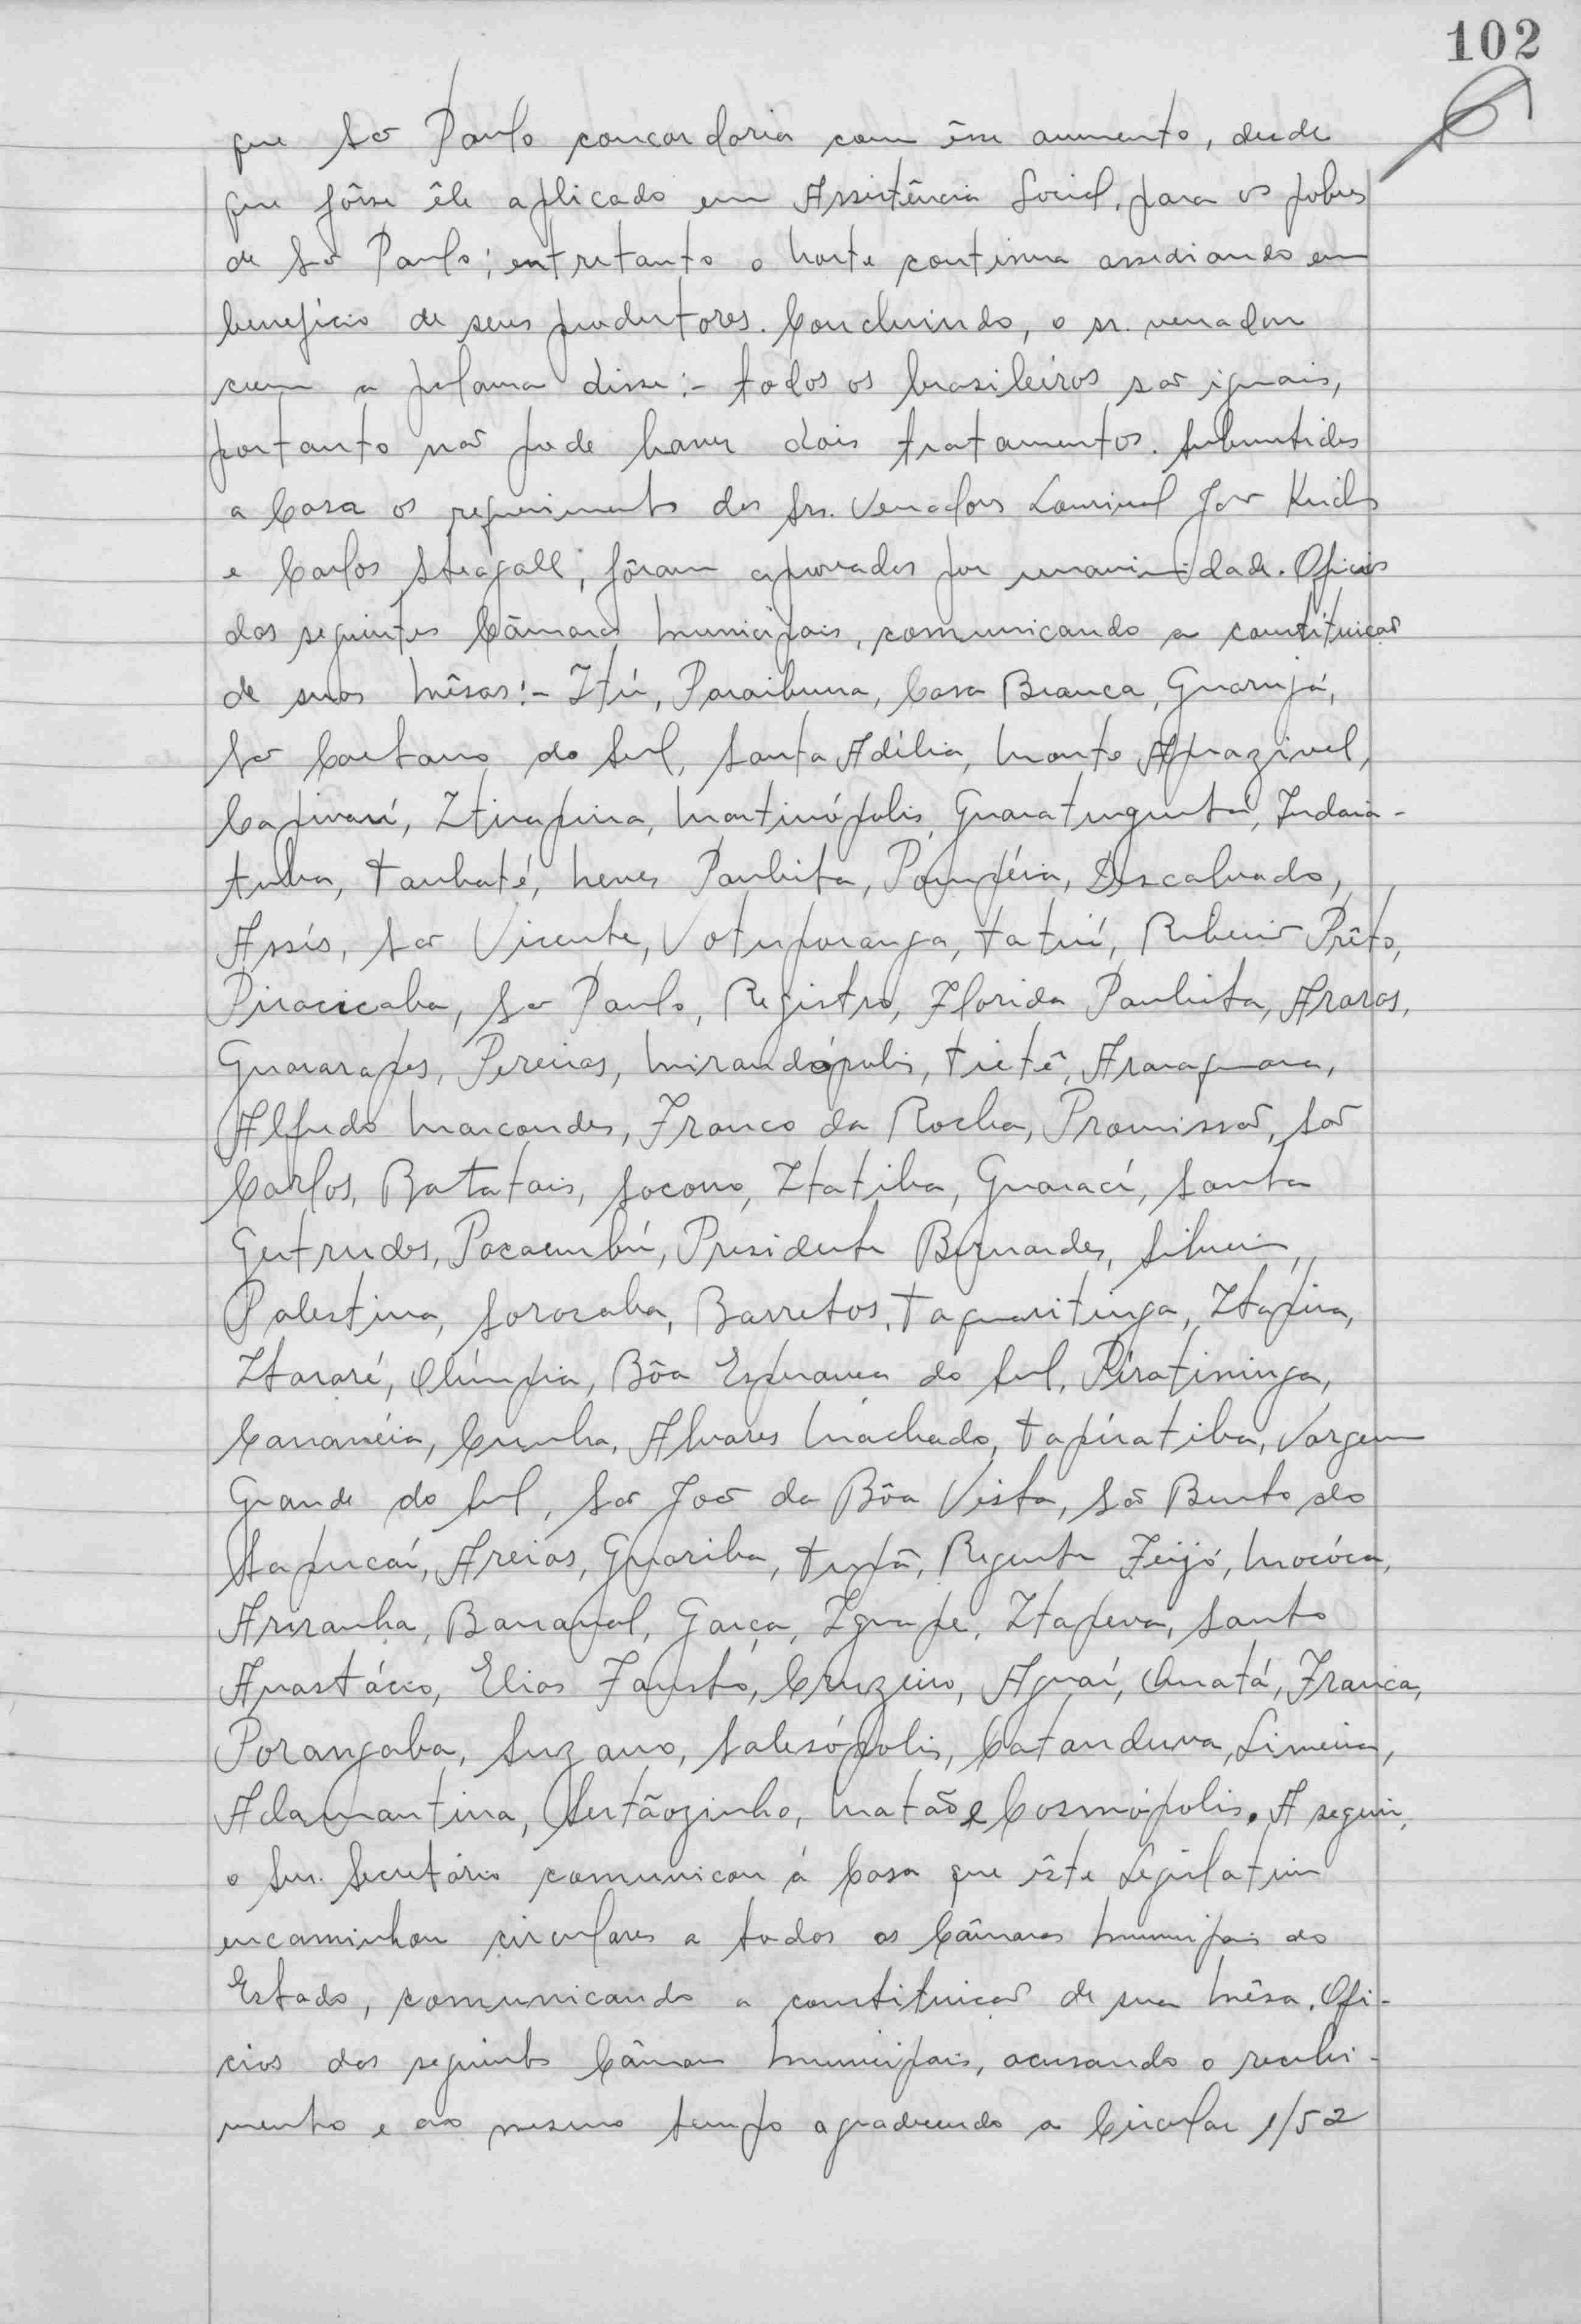 102
que São Paulo concordaria com êsse aumento, desde
que fôsse êle aplicado em Assistência Social, para os pobres
de São Paulo; entretanto o Norte continua assediando em
benefício de seus produtores. Concluindo, o sr. vereador
com a palavra disse:- todos os brasileiros são iguais,
portanto não pode haver dois tratamentos. Submetidos
a Casa os requerimentos dos Srs. Vereadores Lourival José
e Carlos Steagall, fôram aprovados por unanimidade. Ofícios
das seguintes Câmaras Municipais, comunicando a constituição
de suas Mêsas:- Itú, Paraibuna, Casa Branca, Guarujá,
São Caetano do Sul, Santa Adélia, Monte Aprazivel,
Capivarí, Itirapina, Martinópolis, Guaratinguetá, Indaia-
tuba, Taubaté, Neves Paulista, Pompéia, Descalvado,
Assís, São Vicente, Votuporanga, Tatuí, Ribeirão Prêto,
Piracicaba, São Paulo, Registro, Florida Paulista, Araras,
Guararapes, Pereiras, Mirandópolis, Tietê, Araraquara,
Alfredo Marcondes, Franco da Rocha, Promissão, São
Carlos, Batatais, Socorro, Itatiba, Guarací, Santa
Gertrudes, Pacaembú, Presidente Bernardes, Silveiras,
Palestina, Sorocaba, Barretos, Taquaritinga, Itapira,
Itararé, Olímpia, Bôa Esperança do Sul, Piratininga,
Cananéia, Cunha, Alvares Machado, Tapiratiba, Vargem
Grande do Sul, São João da Bôa Vista, São Bento do
Sapucaí, Areias, Guariba, Tupã, Regente Feijó, Mocóca,
Ariranha, Bananal, Garça, Iguape, Itapeva, Santo
Anastácio, Elias Fausto, Cruzeiro, Aguaí, Quatá, Franca,
Porangaba, Suzano, Salesópolis, Catanduva, Limeira,
Adamantina, Sertãozinho, Matão e Cosmópolis. A seguir,
o Snr. Secretário comunicou à Casa que êste Legislativo
encaminhou circulares a todas as Câmaras Municipais do
Estado, comunicando a constituição de sua Mêsa. Ofí-
cios das seguintes Câmaras Municipais, acusando o recebi-
mento e ao mesmo tempo agradecendo a Circular 1/52